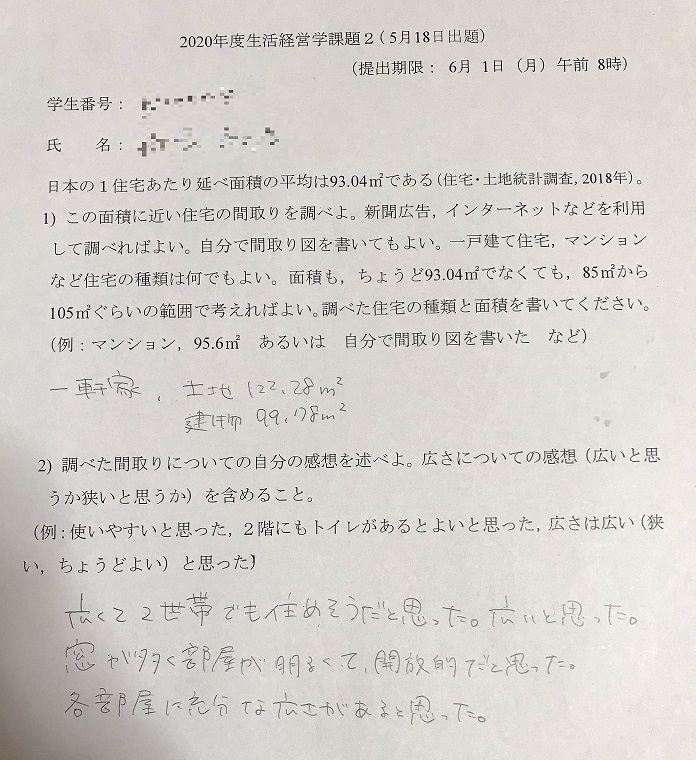 2020年度生活経営学課題2(5月18日出題)
(提出期限： 6月 1日（月）午前 8時)
学生番号：
氏　　名：
日本の1住宅あたり延べ面積の平均は93.04㎡である(住宅・土地統計調査, 2018年)。
1) この面積に近い住宅の間取りを調べよ。新聞広告，インターネットなどを利用
して調べればよい。自分で間取り図を書いてもよい。一戸建て住宅，マンション
など住宅の種類は何でもよい。面積も，ちょうど93.04㎡でなくても，85㎡から
105㎡ぐらいの範囲で考えればよい。調べた住宅の種類と面積を書いてください。
(例：マンション，95.6㎡　あるいは　自分で間取り図を書いた　など)
一軒家、土地 122.28m²
建物 99.78m²
2) 調べた間取りについての自分の感想を述べよ。広さについての感想（広いと思
うか狭いと思うか）を含めること。
(例：使いやすいと思った，2階にもトイレがあるとよいと思った，広さは広い（狭
い，ちょうどよい）と思った)
広くて2世帯でも住めそうだと思った。広いと思った。
窓が多く部屋が明るくて、開放的だと思った。
各部屋に充分な広さがあると思った。